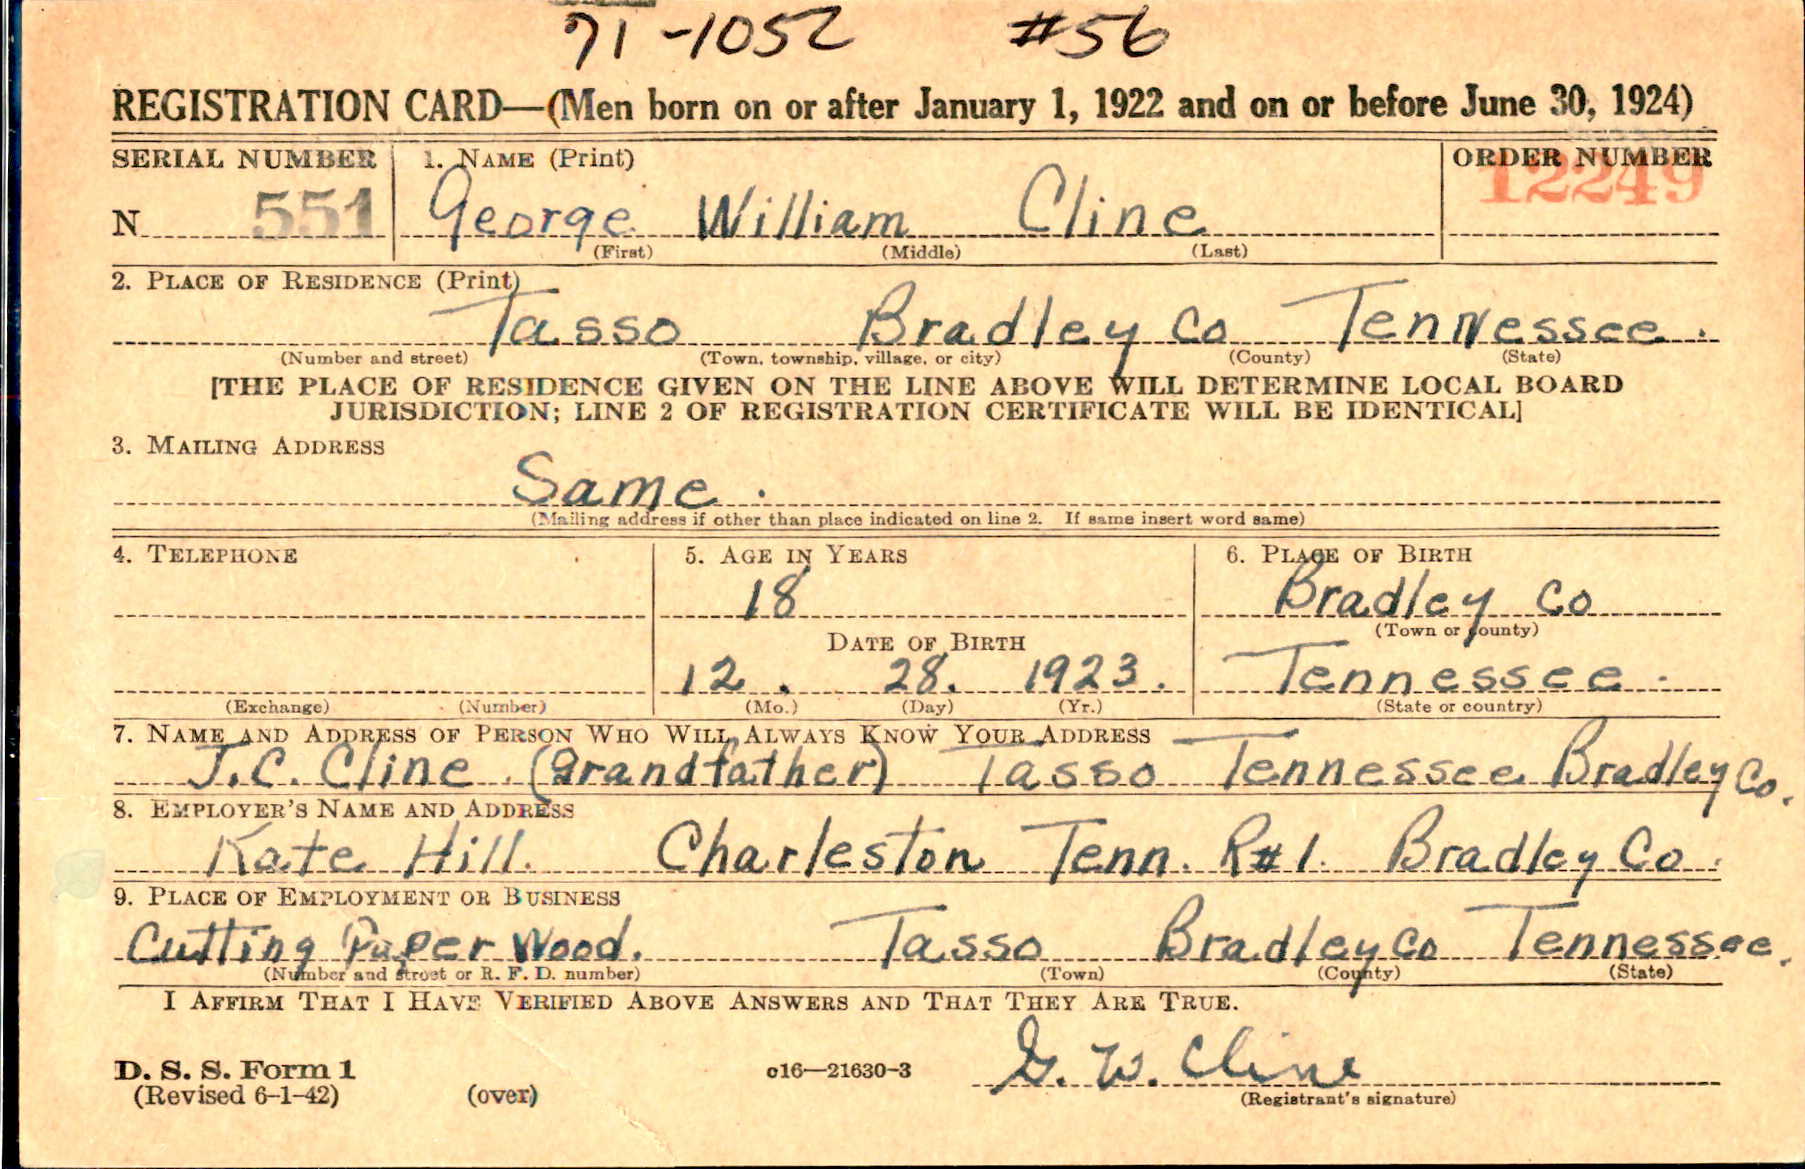 71-1052 #56
REGISTRATION CARD—(Men born on or after January 1, 1922 and on or before June 30, 1924)
SERIAL NUMBER 1. NAME (Print) ORDER NUMBER
N 551 George William Cline 12249
(First) (Middle) (Last)
2. PLACE OF RESIDENCE (Print)
Tasso Bradley Co Tennessee.
(Number and street) (Town, township, village, or city) (County) (State)
[THE PLACE OF RESIDENCE GIVEN ON THE LINE ABOVE WILL DETERMINE LOCAL BOARD
JURISDICTION; LINE 2 OF REGISTRATION CERTIFICATE WILL BE IDENTICAL]
3. MAILING ADDRESS
Same.
(Mailing address if other than place indicated on line 2. If same insert word same)
4. TELEPHONE 5. AGE IN YEARS 6. PLACE OF BIRTH
18 Bradley Co
DATE OF BIRTH (Town or county)
12. 28. 1923. Tennessee.
(Exchange) (Number) (Mo.) (Day) (Yr.) (State or country)
7. NAME AND ADDRESS OF PERSON WHO WILL ALWAYS KNOW YOUR ADDRESS
J.C. Cline (Grandfather) Tasso Tennessee Bradley Co.
8. EMPLOYER'S NAME AND ADDRESS
Kate Hill. Charleston Tenn. R#1. Bradley Co.
9. PLACE OF EMPLOYMENT OR BUSINESS
Cutting Paper Wood. Tasso Bradley Co Tennessee.
(Number and street or R. F. D. number) (Town) (County) (State)
I AFFIRM THAT I HAVE VERIFIED ABOVE ANSWERS AND THAT THEY ARE TRUE.
D. S. S. Form 1 c16—21630-3 G. W. Cline
(Revised 6-1-42) (over) (Registrant's signature)